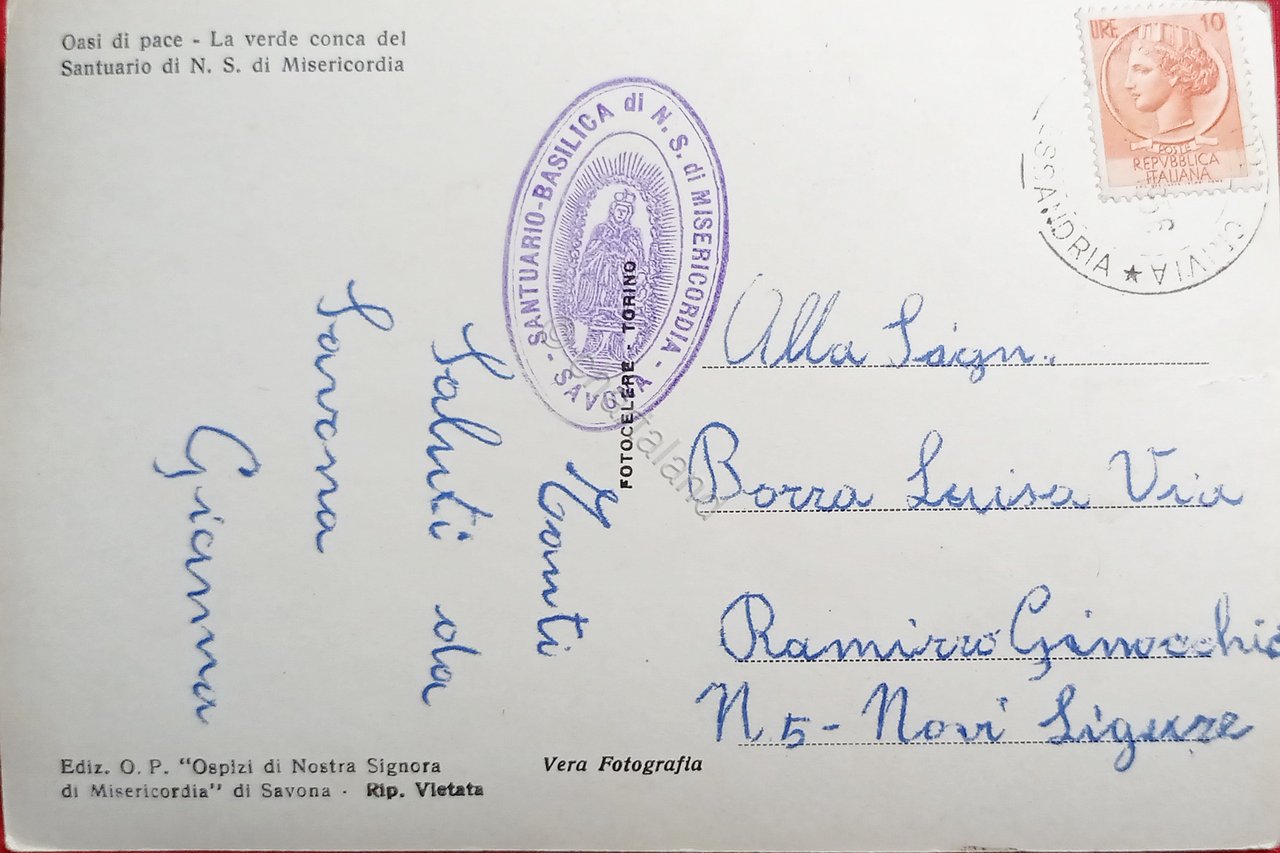 Oasi di pace - La verde conca del
Santuario di N. S. di Misericordia
SANTUARIO-BASILICA di N. S. di MISERICORDIA
- SAVONA -
FOTOCELERE - TORINO
LIRE 10
POSTE
REPVBBLICA
ITALIANA
ALESSANDRIA ★
Tanti
Saluti da
Savona
Gianna
Alla Sign.
Borra Luisa Via
Ramirro Ginocchio
N. 5 - Novi Ligure
Ediz. O. P. "Ospizi di Nostra Signora
di Misericordia" di Savona - Rip. Vietata
Vera Fotografia